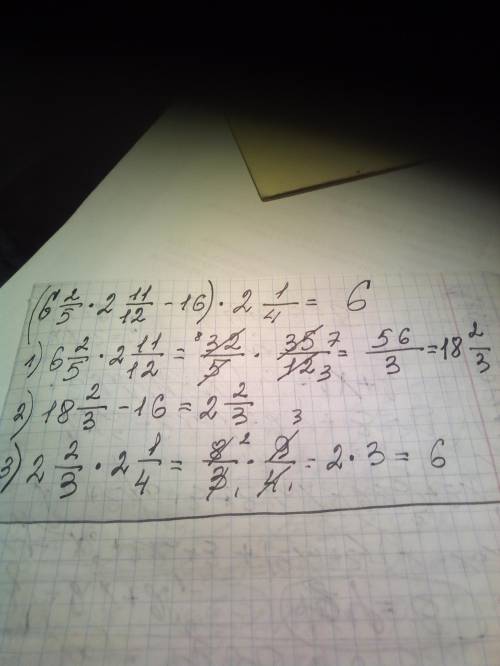 (6 2/5 · 2 11/12 - 16) · 2 1/4 = 6
1) 6 2/5 · 2 11/12 = ⁸32/5 · 35⁷/12₃ = 56/3 = 18 2/3
2) 18 2/3 - 16 = 2 2/3
3) 2 2/3 · 2 1/4 = 8²/3₁ · ³9/4₁ = 2 · 3 = 6